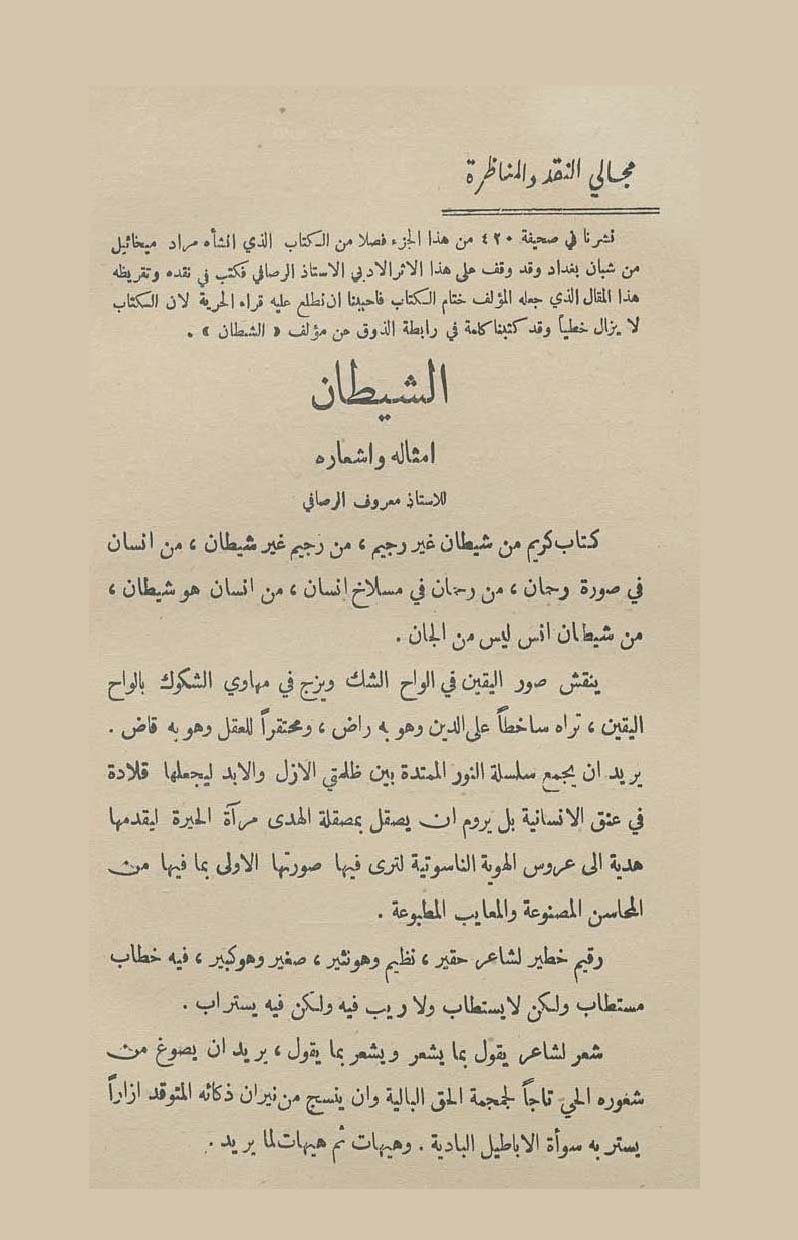 مجالي النقد والمناظرة
نشرنا في صحيفة ٤٢٠ من هذا الجزء فصلا من الكتاب الذي انشأه مراد ميخائيل
من شبان بغداد وقد وقف على هذا الاثر الادبي الاستاذ الرصافي فكتب في نقده وتقريظه
هذا المقال الذي جعله المؤلف ختام الكتاب فاحببنا ان نطلع عليه قراء الحرية لان الكتاب
لا يزال خطياً وقد كتبنا كلمة في رابطة الذوق عن مؤلف « الشطان » .
الشيطان
امثاله واشعاره
للاستاذ معروف الرصافي
كتاب كريم من شيطان غير رجيم ، من رجيم غير شيطان ، من انسان
في صورة رحمان ، من رحمان في مسلاخ انسان ، من انسان هو شيطان ،
من شيطان انس ليس من الجان .
ينقش صور اليقين في الواح الشك ويزج في مهاوي الشكوك بالواح
اليقين ، تراه ساخطاً على الدين وهو به راض ، ومحتقراً للعقل وهو به قاض .
يريد ان يجمع سلسلة النور الممتدة بين ظلمتي الازل والابد ليجعلها قلادة
في عنق الانسانية بل يروم ان يصقل بمصقلة الهدى مرآة الحيرة ليقدمها
هدية الى عروس الهوية الناسوتية لترى فيها صورتها الاولى بما فيها من
المحاسن المصنوعة والمعايب المطبوعة .
رقيم خطير لشاعر حقير ، نظيم وهو نثير ، صغير وهو كبير ، فيه خطاب
مستطاب ولكن لا يستطاب ولا ريب فيه ولكن فيه يستراب .
شعر لشاعر يقول بما يشعر ويشعر بما يقول ، يريد ان يصوغ من
شعوره الحي تاجاً لجمجمة الحق البالية وان ينسج من نيران ذكائه المتوقد ازاراً
يستر به سوأة الاباطيل البادية . وهيهات ثم هيهات لما يريد .